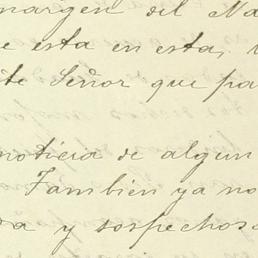 margen del Na
e esta en esta,
te Señor que pa
noticia de algun
Tambien ya no
da y sospechosa